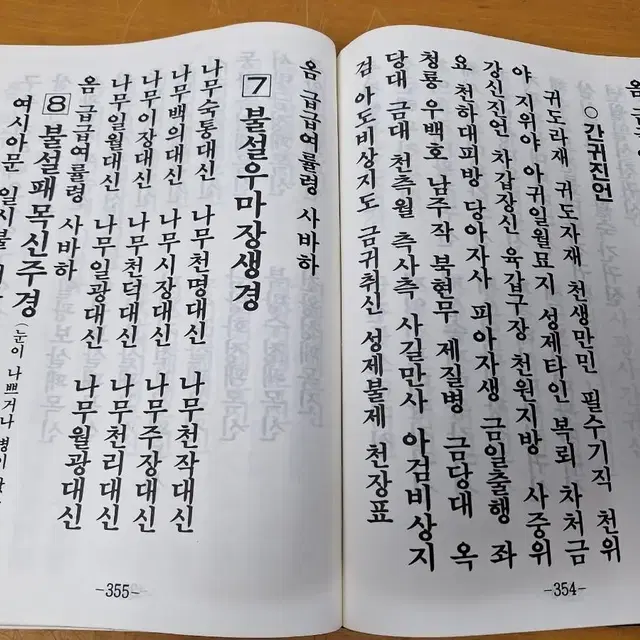 옴
○간귀진언
귀도라재 귀도자재 천생만민 필수기직 천위
야 지위야 아귀일월묘지 성제타인 복뢰 차처금
강신진언 차갑장신 육갑구장 천원지방 사중위
요 천하대피방 당아자사 피아자생 금일출행 좌
청룡 우백호 남주작 북현무 제질병 금당대 옥
당대 금대 천측월 측사측 사길만사 아검비상지
검 아도비상지도 금귀취신 성제불제 천장표
-354-
옴 급급여률령 사바하
7 불설우마장생경
나무숙통대신 나무천명대신 나무천작대신
나무백의대신 나무시장대신 나무주장대신
나무이장대신 나무천덕대신 나무천리대신
나무일월대신 나무일광대신 나무월광대신
옴 급급여률령 사바하
8 불설패목신주경 (눈이 나쁘거나 병이
여시아문 일시불
-355-